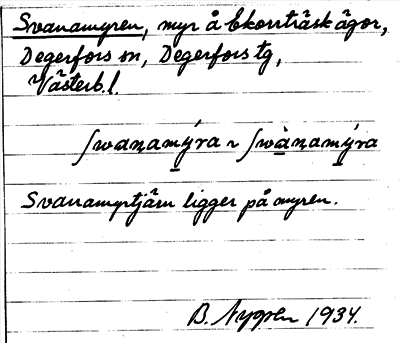 Svanamyren, myr å Ekorrträsk ägor,
Degerfors sn, Degerfors tg,
Västerb. l.
ʃwanamýra ~ ʃwànamýra
Svanamyrtjärn ligger på myren.
B. Nygren 1934.